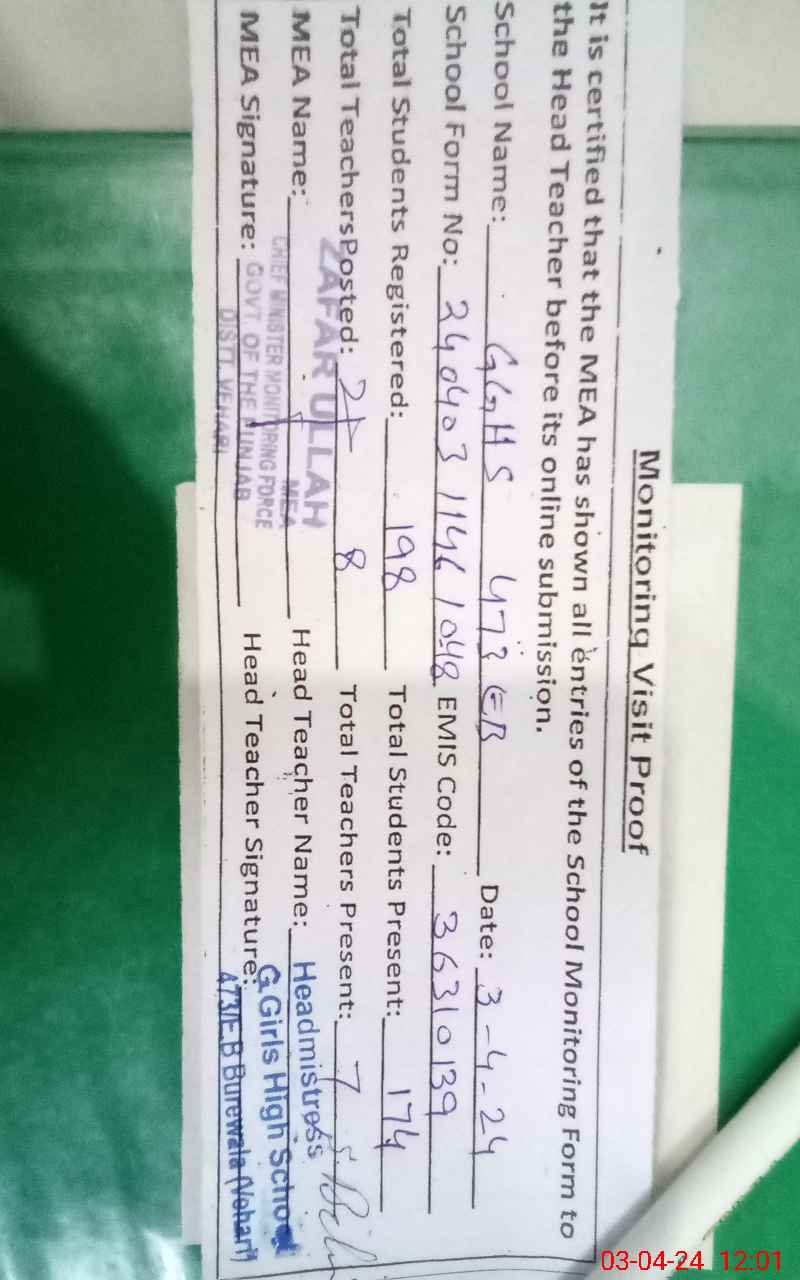 Monitoring Visit Proof
It is certified that the MEA has shown all entries of the School Monitoring Form to
the Head Teacher before its online submission.
School Name: GGHS 473 EB Date: 3-4-24
School Form No: 2404031146 1048 EMIS Code: 36310139
Total Students Registered: 198 Total Students Present: 174
Total Teachers Posted: 8 Total Teachers Present: 7
MEA Name: Head Teacher Name: Headmistress
MEA Signature: Head Teacher Signature: G.Girls High School
473/E.B Burewala (Vehari)
ZAFAR ULLAH
MEA
CHIEF MINISTER MONITORING FORCE
GOVT. OF THE PUNJAB
DISTT. VEHARI
03-04-24 12:01